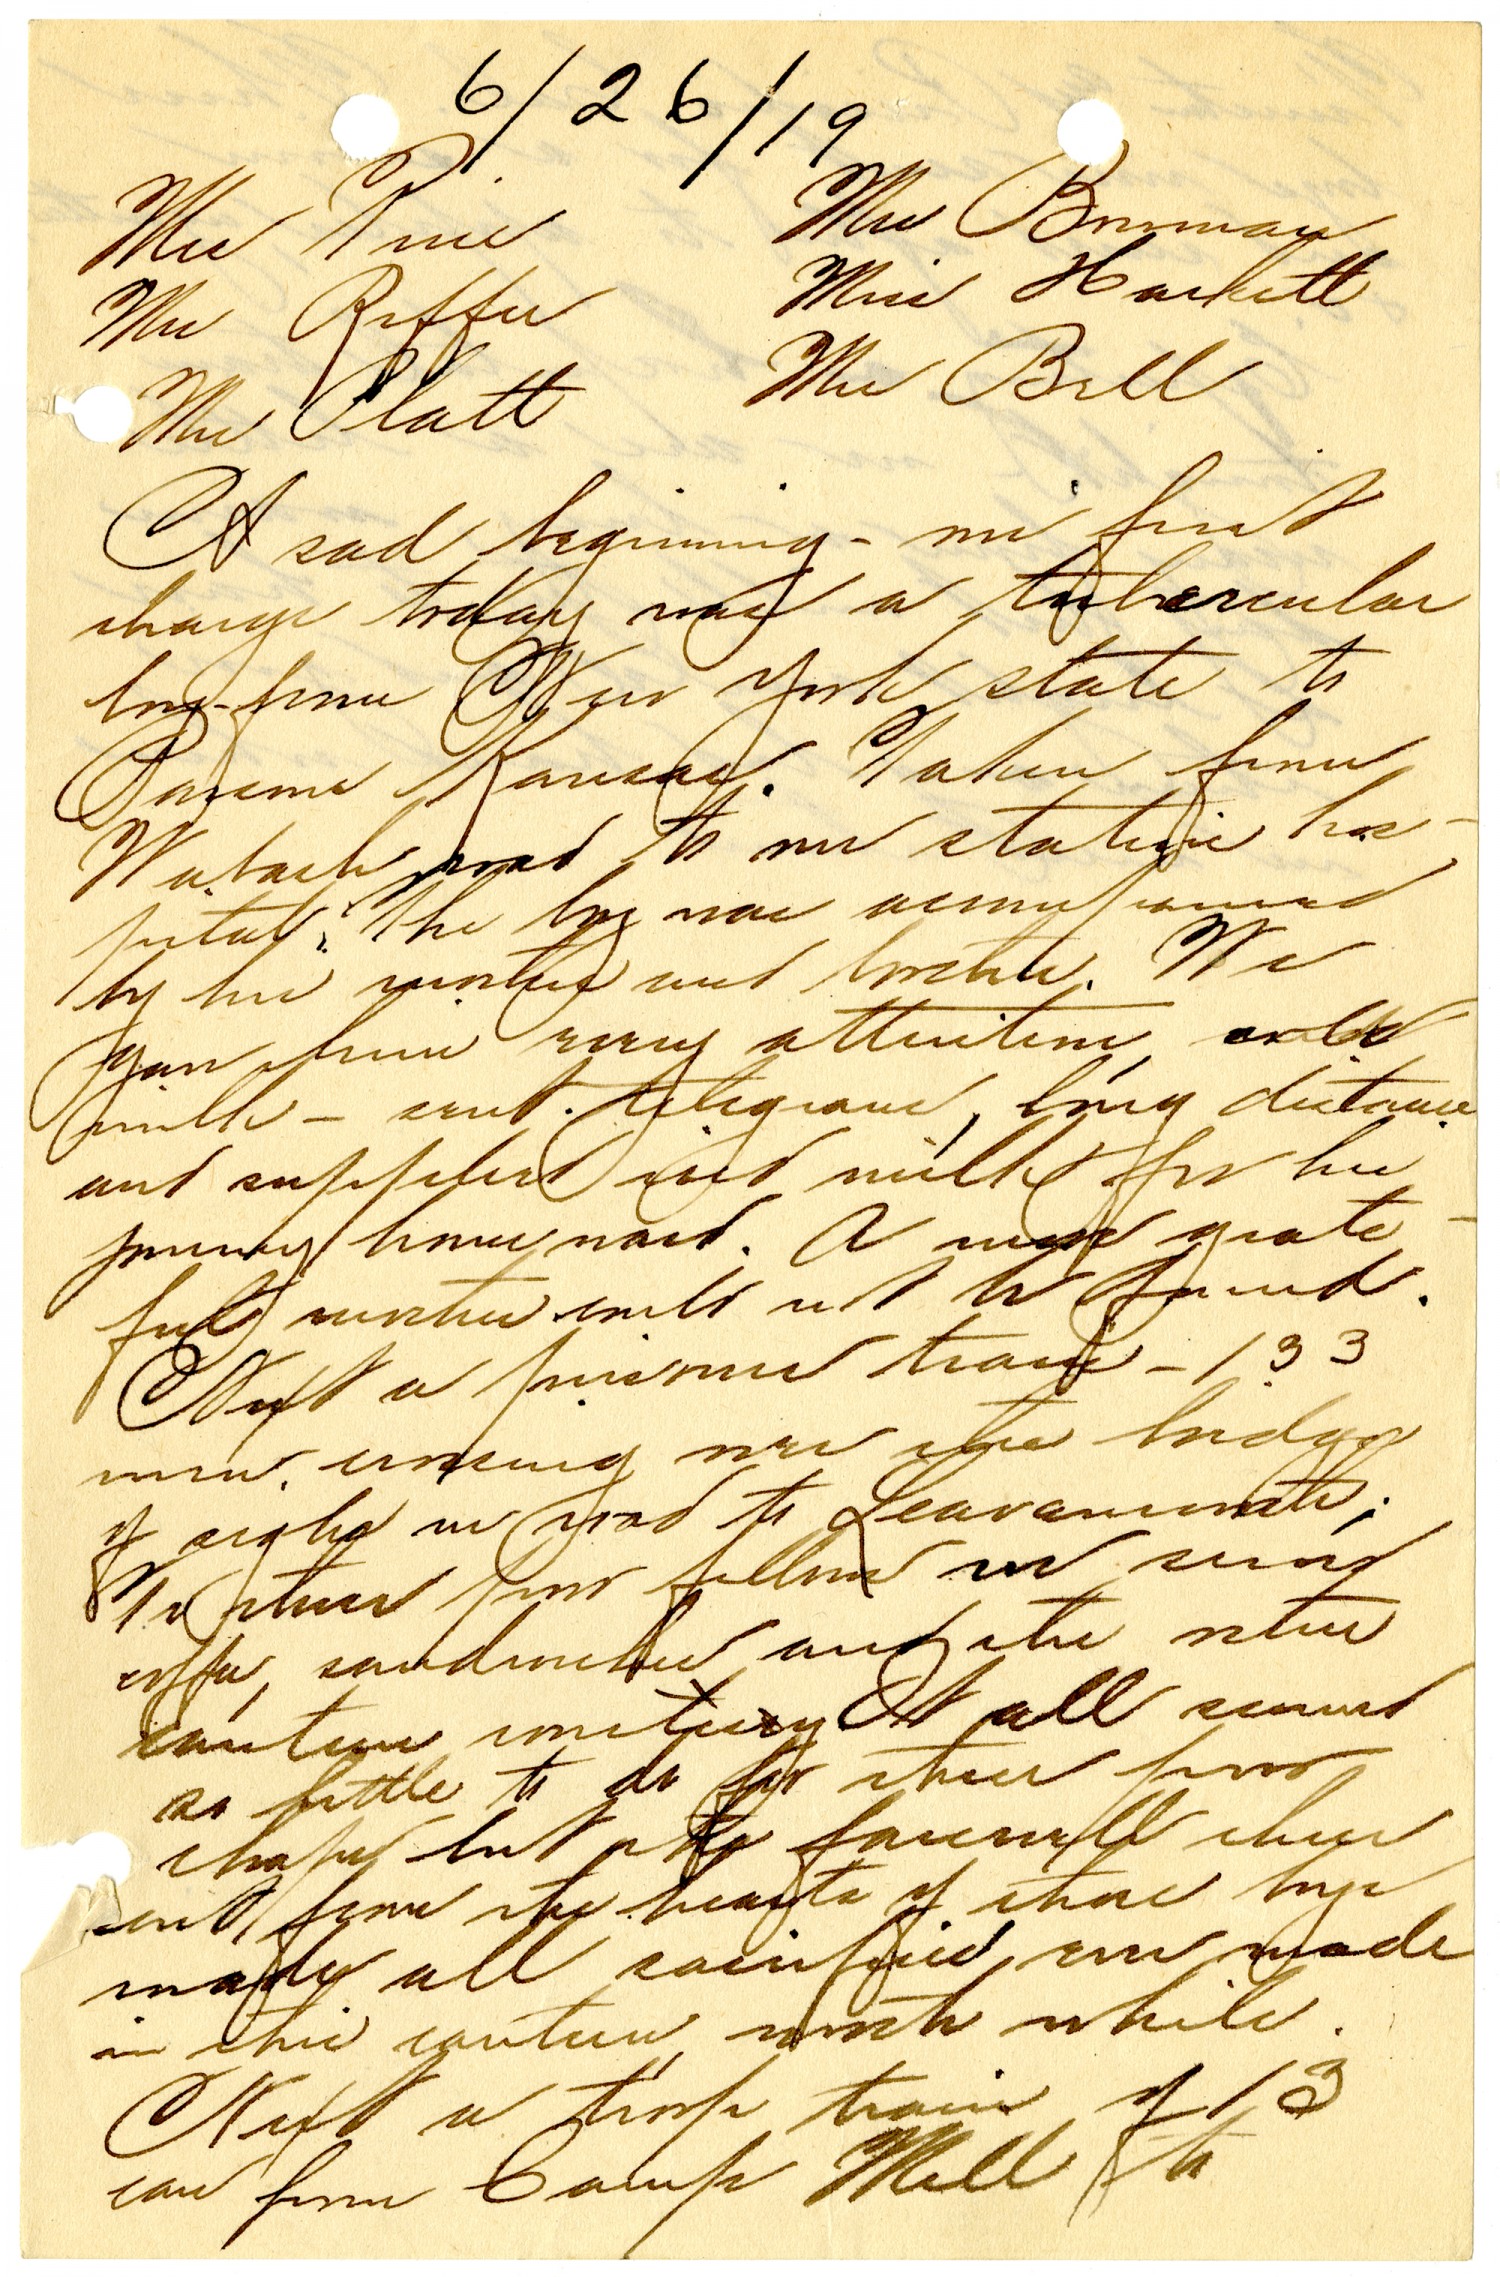 6/26/19
Mrs Price Mrs Bowman
Mrs Reffer Miss Hackett
Mrs Platt Mrs Bell
A sad beginning - our first
charge today was a tubercular
boy from New York state to
Parsons Kansas. Taken from
Wabash road to our station hos-
pital. The boy was accompanied
by his mother and brother. We
gave him every attention, cold
milk - sent telegram, long distance
and supplied iced milk for his
journey homeward. A more grate-
ful mother could not be found.
Next a prisoner train - 133
men. crossing over the bridge
of sighs en road to Leavenworth;
To these poor fellows we served
coffee, sandwiches and the other
canteen courtesy It all seemed
so little to do for these poor
chaps but the farewell cheer
sent from the hearts of those boys
made all sacrifices ever made
in this canteen worth while.
Next a troop train of 13
cars from Camp Mill to